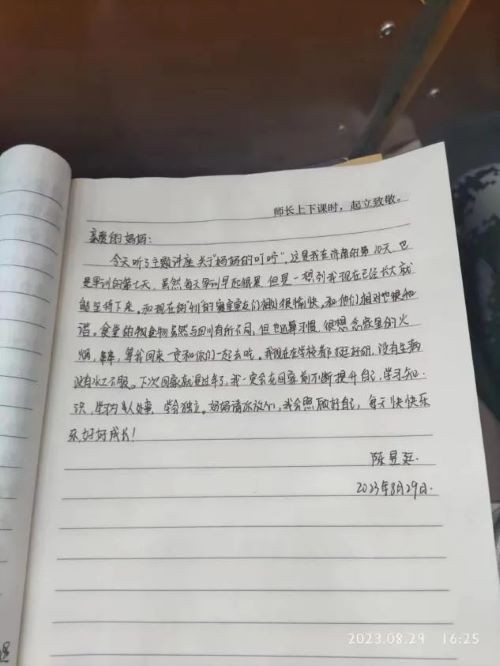 师长上下课时，起立致敬。
亲爱的妈妈：
今天听了主题讲座关于"妈妈的叮咛"，这是我在济南的第10天，也
是军训的第七天，虽然每天军训早起很累，但是一想到我现在已经长大就
能坚持下来。和现在的室友们相处很愉快，和他们相对也很和
谐，食堂的饭食物虽然与四川有所不同，但也还算习惯，很想念家里的火
锅，串串，等我回来一定和你们一起去吃。我现在在学校都挺好的，没有生病
没有水土不服。下次回家就要过年了，我一定会在回家前不断提升自己，学习知
识，学为人处事，学会独立。妈妈请你放心，我会照顾好自己，每天快快乐
乐好好成长！
陈昱
2023年8月29日.
2023.08.29 16:25